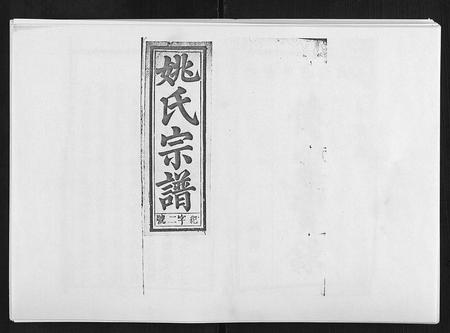 姚氏宗譜
字二號